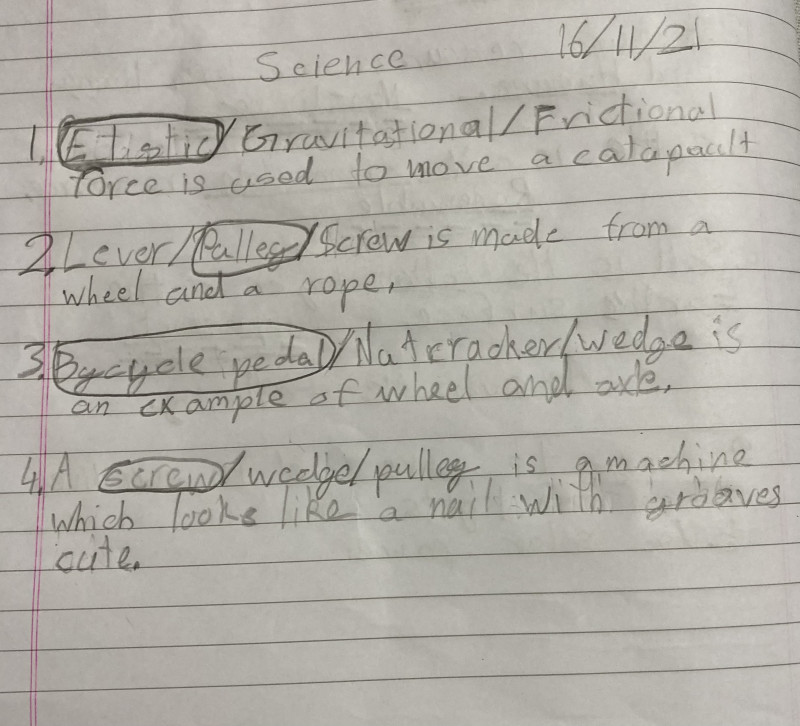 Science 16/11/21
1. Elastic/Gravitational/Frictional
force is used to move a catapault
2. Lever/Pulley/Screw is made from a
wheel and a rope.
3. Bycycle pedal/Nutcracker/wedge is
an example of wheel and axle.
4. A screw/wedge/pulley is a machine
which looks like a nail with grooves
cute.